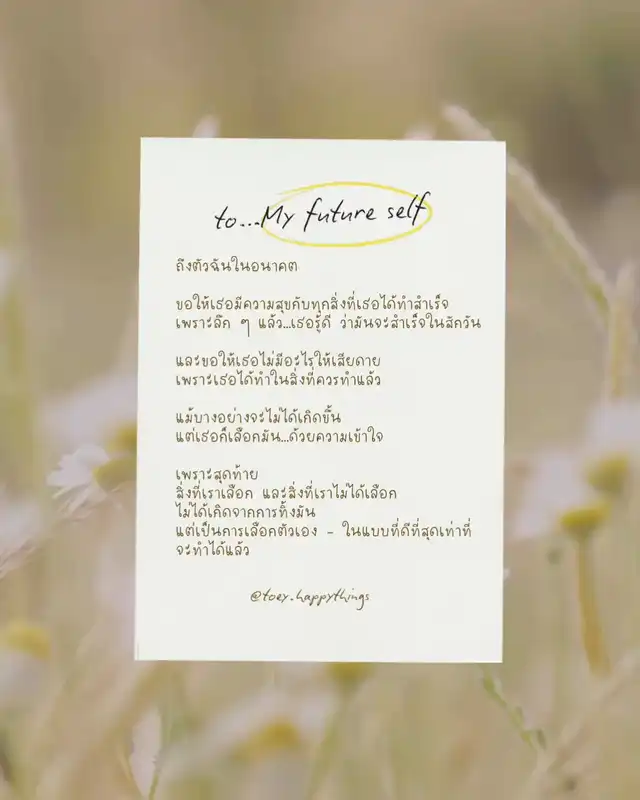 to...My future self
ถึงตัวฉันในอนาคต
ขอให้เธอมีความสุขกับทุกสิ่งที่เธอได้ทำสำเร็จ
เพราะลึก ๆ แล้ว...เธอรู้ดี ว่ามันจะสำเร็จในสักวัน
และขอให้เธอไม่มีอะไรให้เสียดาย
เพราะเธอได้ทำในสิ่งที่ควรทำแล้ว
แม้บางอย่างจะไม่ได้เกิดขึ้น
แต่เธอก็เลือกมัน...ด้วยความเข้าใจ
เพราะสุดท้าย
สิ่งที่เราเลือก และสิ่งที่เราไม่ได้เลือก
ไม่ได้เกิดจากการทิ้งมัน
แต่เป็นการเลือกตัวเอง - ในแบบที่ดีที่สุดเท่าที่
จะทำได้แล้ว
@toey.happythings